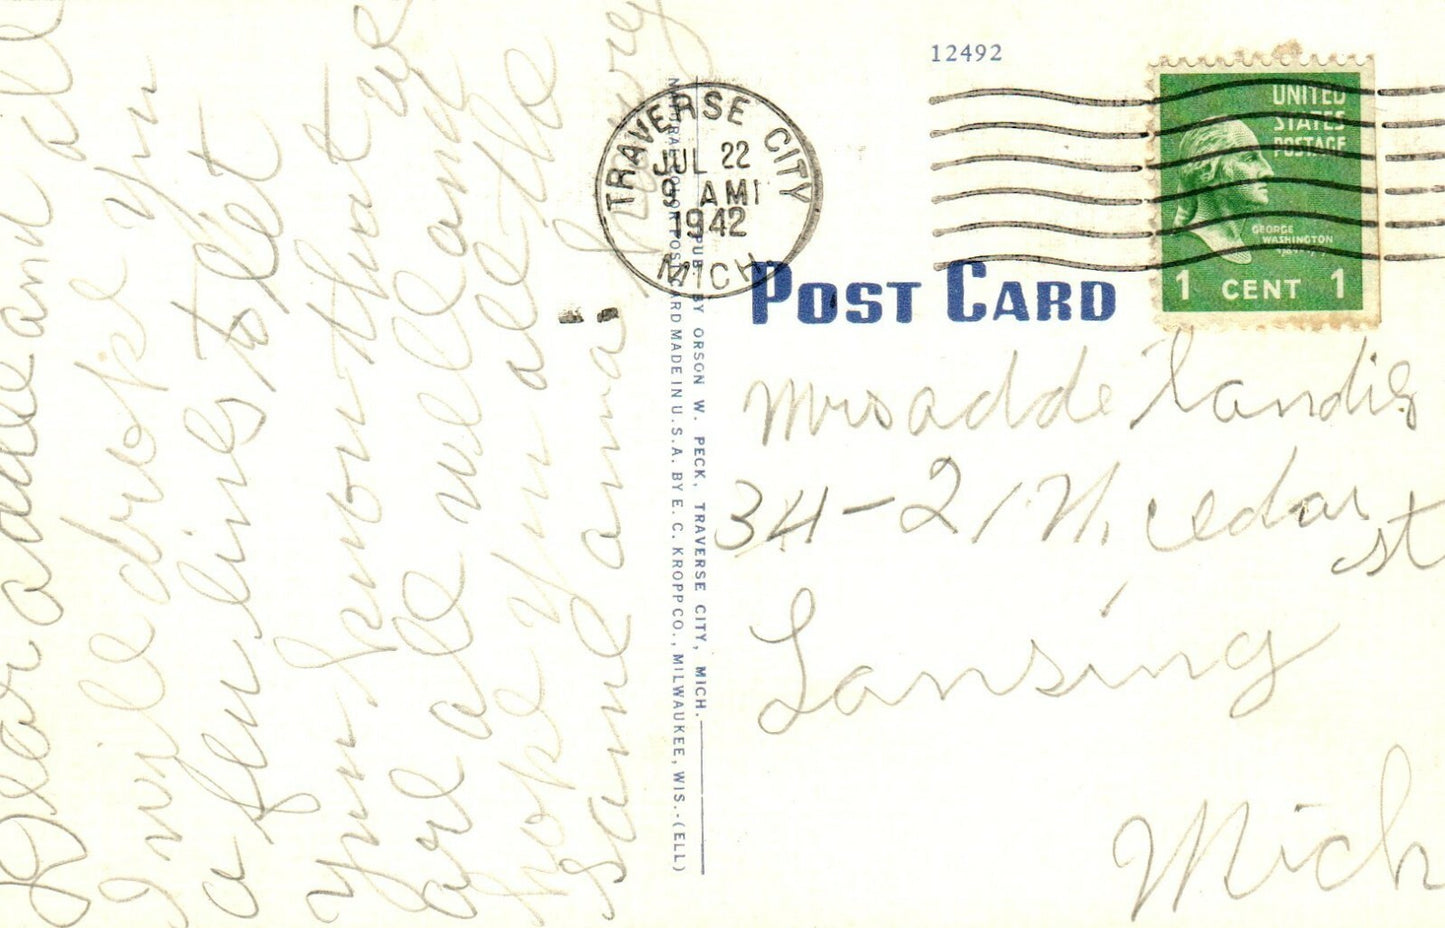 Dear adde and all
I will drop you
a few lines to let
you know that we
are all well and
hope you all the
same anna Lowry
12492
TRAVERSE CITY
JUL 22
9 AM
1942
MICH
UNITED
STATES
POSTAGE
GEORGE
WASHINGTON
1 CENT 1
POST CARD
PUB. BY ORSON W. PECK, TRAVERSE CITY, MICH.
NATURAL COLOR POST CARD MADE IN U.S.A. BY E. C. KROPP CO., MILWAUKEE, WIS.-(ELL)
Mrs adde Landis
34-21 N. cedar
st
Lansing
Mich